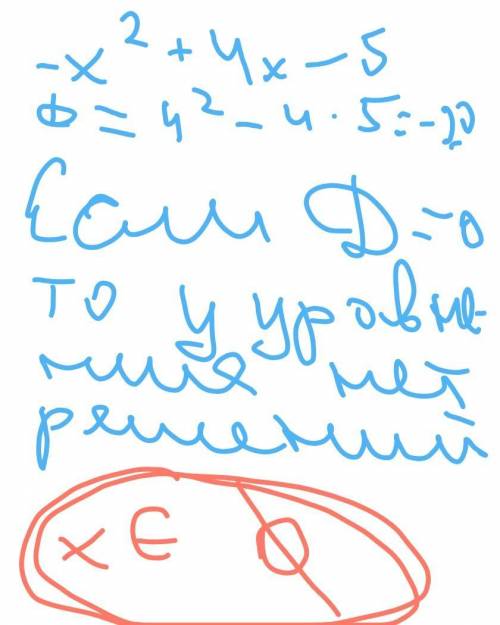 -x² + 4x - 5
D = 4² - 4 · 5 = -20
Если D = 0
то у уровне-
ния нет
решений
x ∈ ∅